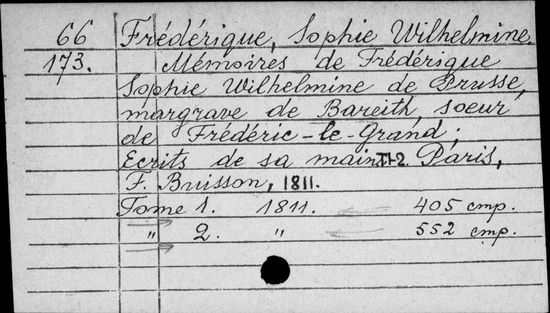 66 Frédérique, Sophie Wilhelmine.
173. Mémoires de Frédérique
Sophie Wilhelmine de Prusse,
margrave de Bareith, soeur
de Frédéric-le-Grand;
Ecrits de sa main. T.1-2. Paris,
F. Buisson, 1811.
Tome 1. 1811. 405 cmp.
" 2. " 552 cmp.